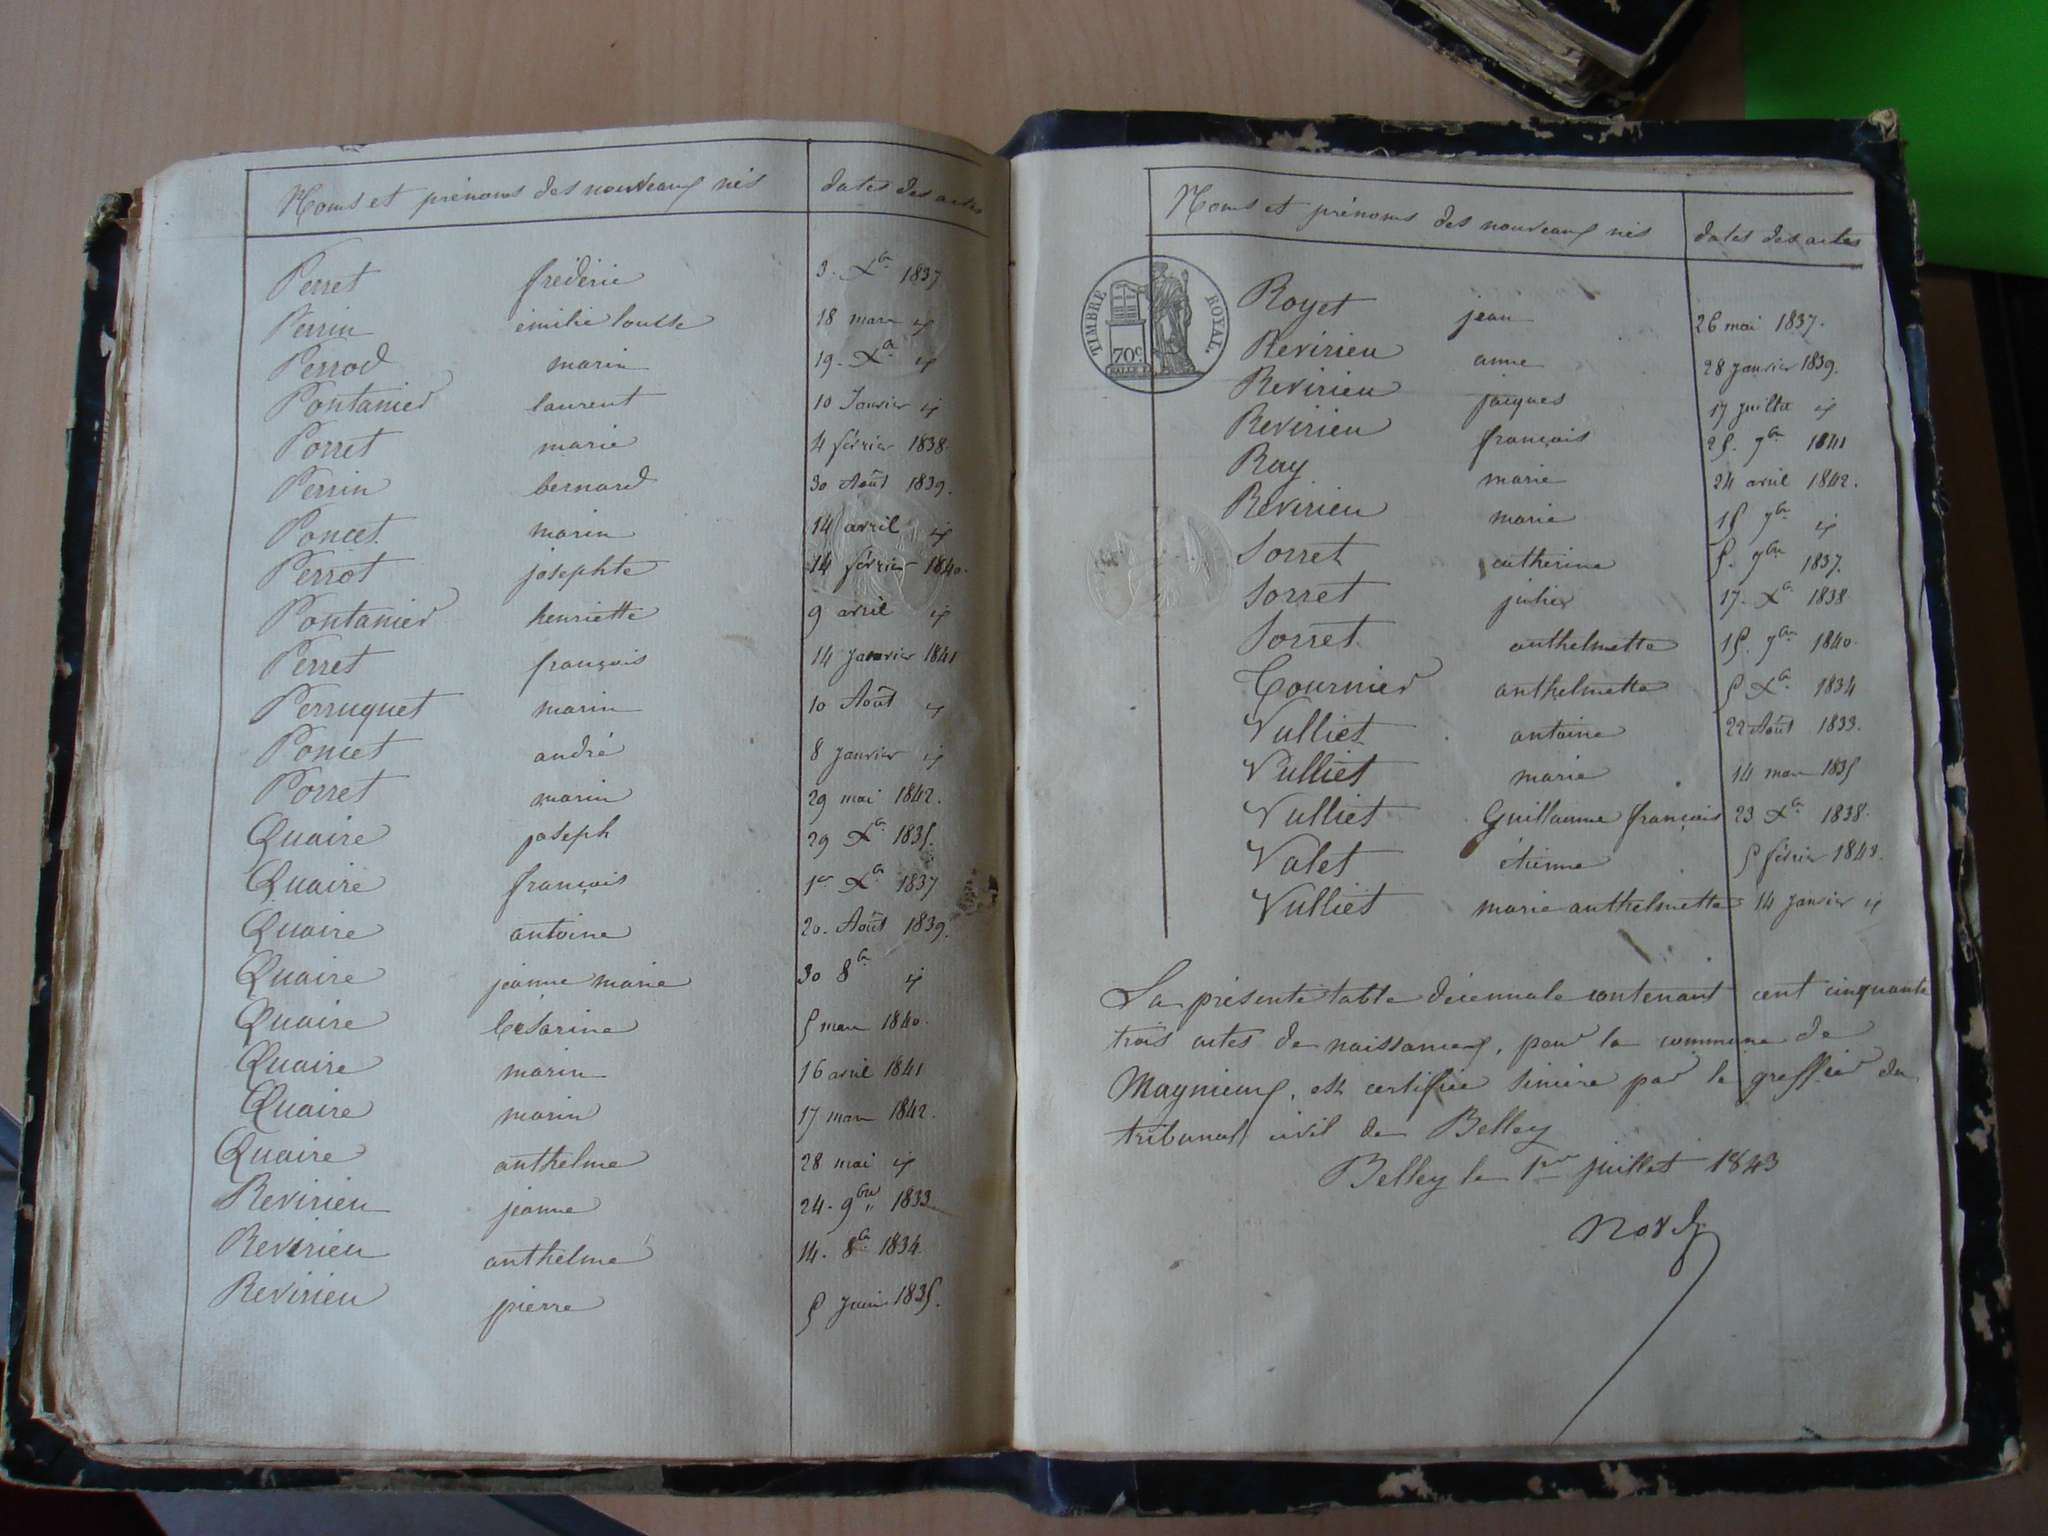 Noms et prénoms des nouveaux nés dates des actes
Perret frédéric 3. Xbr 1837
Perrin émilie louise 18 mars id
Perrod marin 19. Xbr id
Pontanier laurent 10 Janvier id
Porret marie 4 février 1838.
Perrin bernard 30 Août 1839.
Poncet marin 14 avril id
Perrot josephte 14 février 1840.
Pontanier henriette 9 avril id
Perret françois 14 janvier 1841
Perruquet marin 10 Août id
Poncet andré 8 janvier id
Porret marin 29 mai 1842.
Quaire joseph 29 Xbr 1835.
Quaire françois 1er Xbr 1837
Quaire antoine 20. Août 1839.
Quaire jeanne marie 30 8br id
Quaire Césarine 5 mars 1840.
Quaire marin 16 avril 1841
Quaire marin 17 mars 1842.
Quaire anthelme 28 mai id
Revirieu jeanne 24. 9bre 1833
Revirieu anthelme 14. 8br 1834.
Revirieu pierre 5 Juin 1835.
Noms et prénoms des nouveaux nés dates des actes
TIMBRE ROYAL.
70c
Royet jean 26 mai 1837.
Revirieu anne 28 janvier 1839.
Revirieu jacques 17 juillet id
Revirieu françois 25. 7br 1841
Ray marie 24 avril 1842.
Revirieu marie 15 7br id
Sorret catherine 5. 7bre 1837.
Sorret julie 17. Xbr 1838
Sorret anthelmette 15. 7br 1840.
Tournier anthelmette 5 Xbr 1834
Vulliet antoine 22 Août 1833.
Vulliet marie 14 mars 1835
Vulliet Guillaume françois 23 Xbr 1838.
Valet étienne 5 février 1843.
Vulliet marie anthelmette 14 Janvier id
La présente table décennale contenant cent cinquante
trois actes de naissances, pour la commune de
Magnieux, est certifiée sincère par le greffier du
tribunal civil de Belley
Belley le 1er juillet 1843